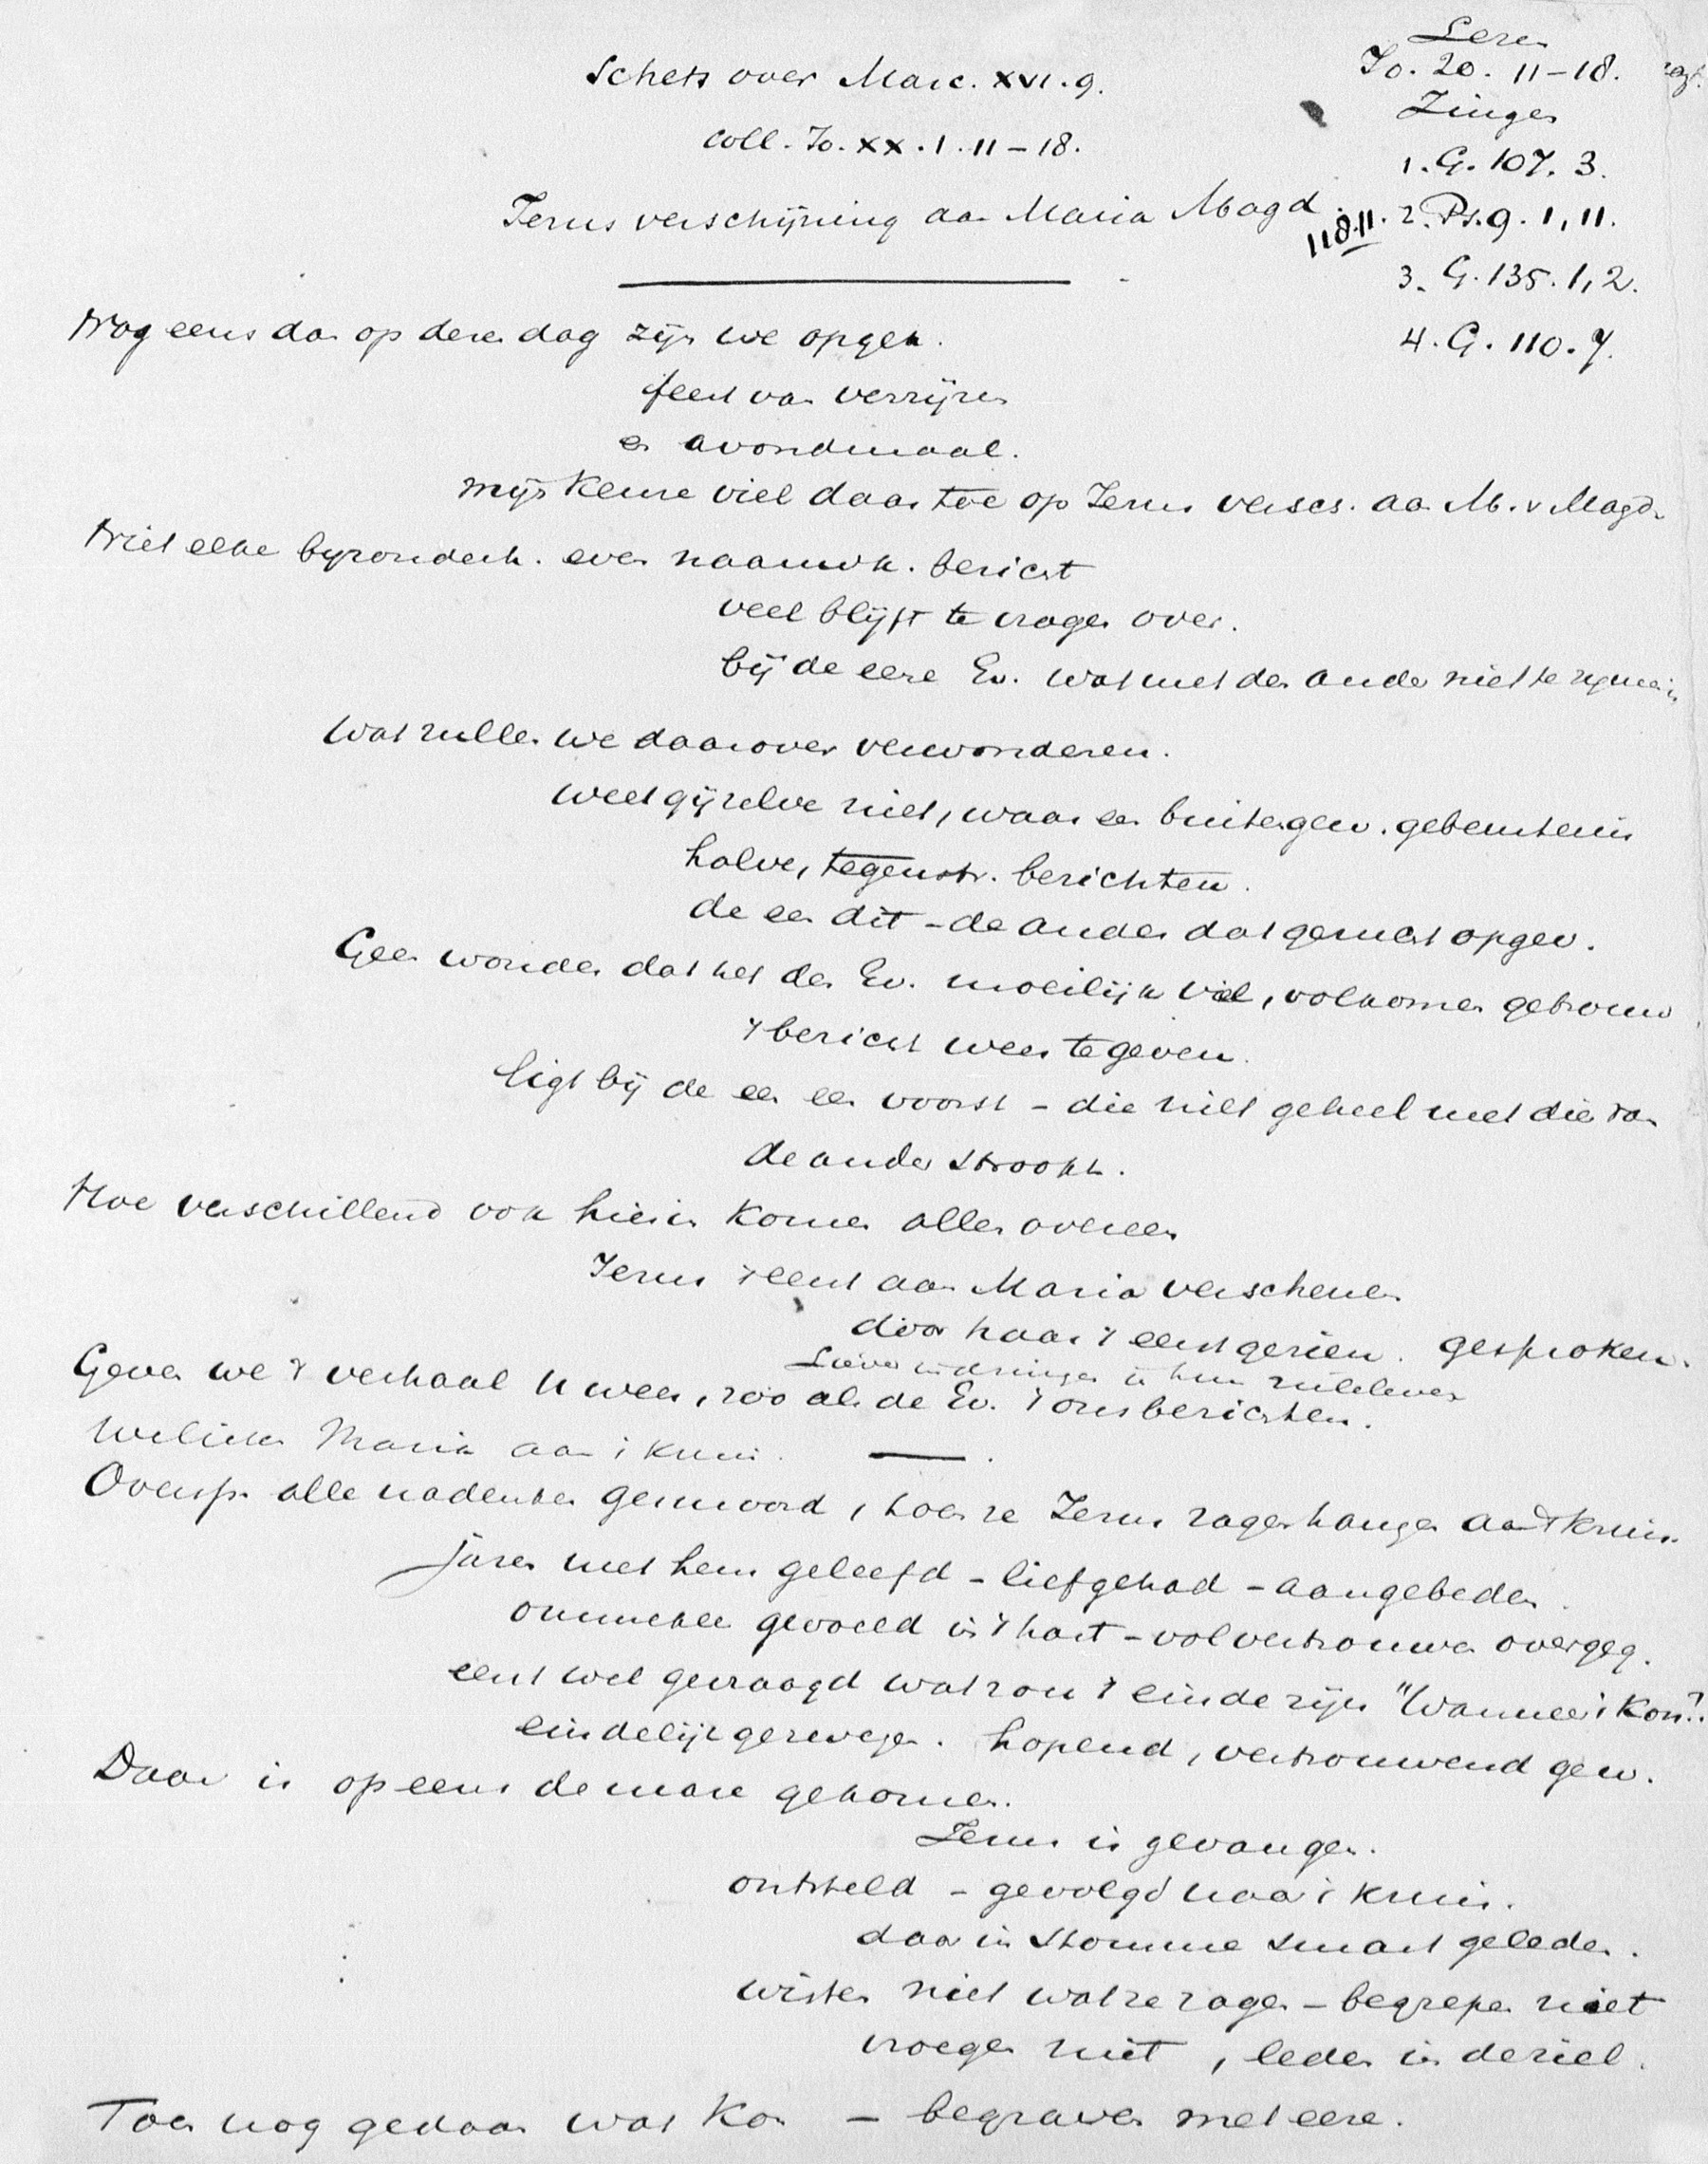 Schets over Marc. XVI. 9.
coll. Jo. XX. 1. 11-18.
Jezus verschijning aan Maria Magd.
Lezen
Jo. 20. 11-18.
Zingen
1. G. 107. 3.
2. Ps. 9. 1, 11.
118.11.
3. G. 135. 1, 2.
4. G. 110. 7.
Nog eens dan op dezen dag zijn we opgek.
feest van verrijzen
en avondmaal.
mijn keuze viel daartoe op Jezus versch. aan M. v Magd.
Niet elke byzonderh. even naauwk. bericht
veel blijft te vragen over.
bij de eene Ev. wat met den ander niet te rijmen is
Wat zullen we daarover verwonderen.
weet gij zelve niet, waar een buitengew. gebeurtenis
halve, tegenstr. berichten.
de een dit - de ander dat gerucht opgev.
Geen wonder dat het den Ev. moeilijk viel, volkomen getrouw
't bericht weer te geven.
ligt bij de een een voorst - die niet geheel met die van
de ander strookt.
Hoe verschillend ook hierin komen allen overeen
Jezus 't eerst aan Maria verschenen
door haar 't eerst gezien. gesproken.
Liever indringen in hun zieleleven
Geven we 't verhaal U weer, zoo als de Ev. 't ons berichten.
Maria aan 't kruis.
Oversp. alle nadenken gesmoord, toen ze Jezus zagen hangen aan 't kruis.
jaren met hem geleefd - liefgehad - aangebeden.
gevoeld in 't hart - vol vertrouwen overgeg.
eens wel gevraagd wat zou 't einde zijn "Wanneer 't kon?"
eindelijk gezwegen. hopend, vertrouwend gew.
Daar is op eens de mare gekomen.
Jezus is gevangen.
ontsteld - gevolgd naar 't kruis.
daar in stomme smart geleden.
wisten niet wat ze zagen - begrepen niet
vroegen niet, leden in de ziel.
Toen nog gedaan wat kon - begraven met eere.